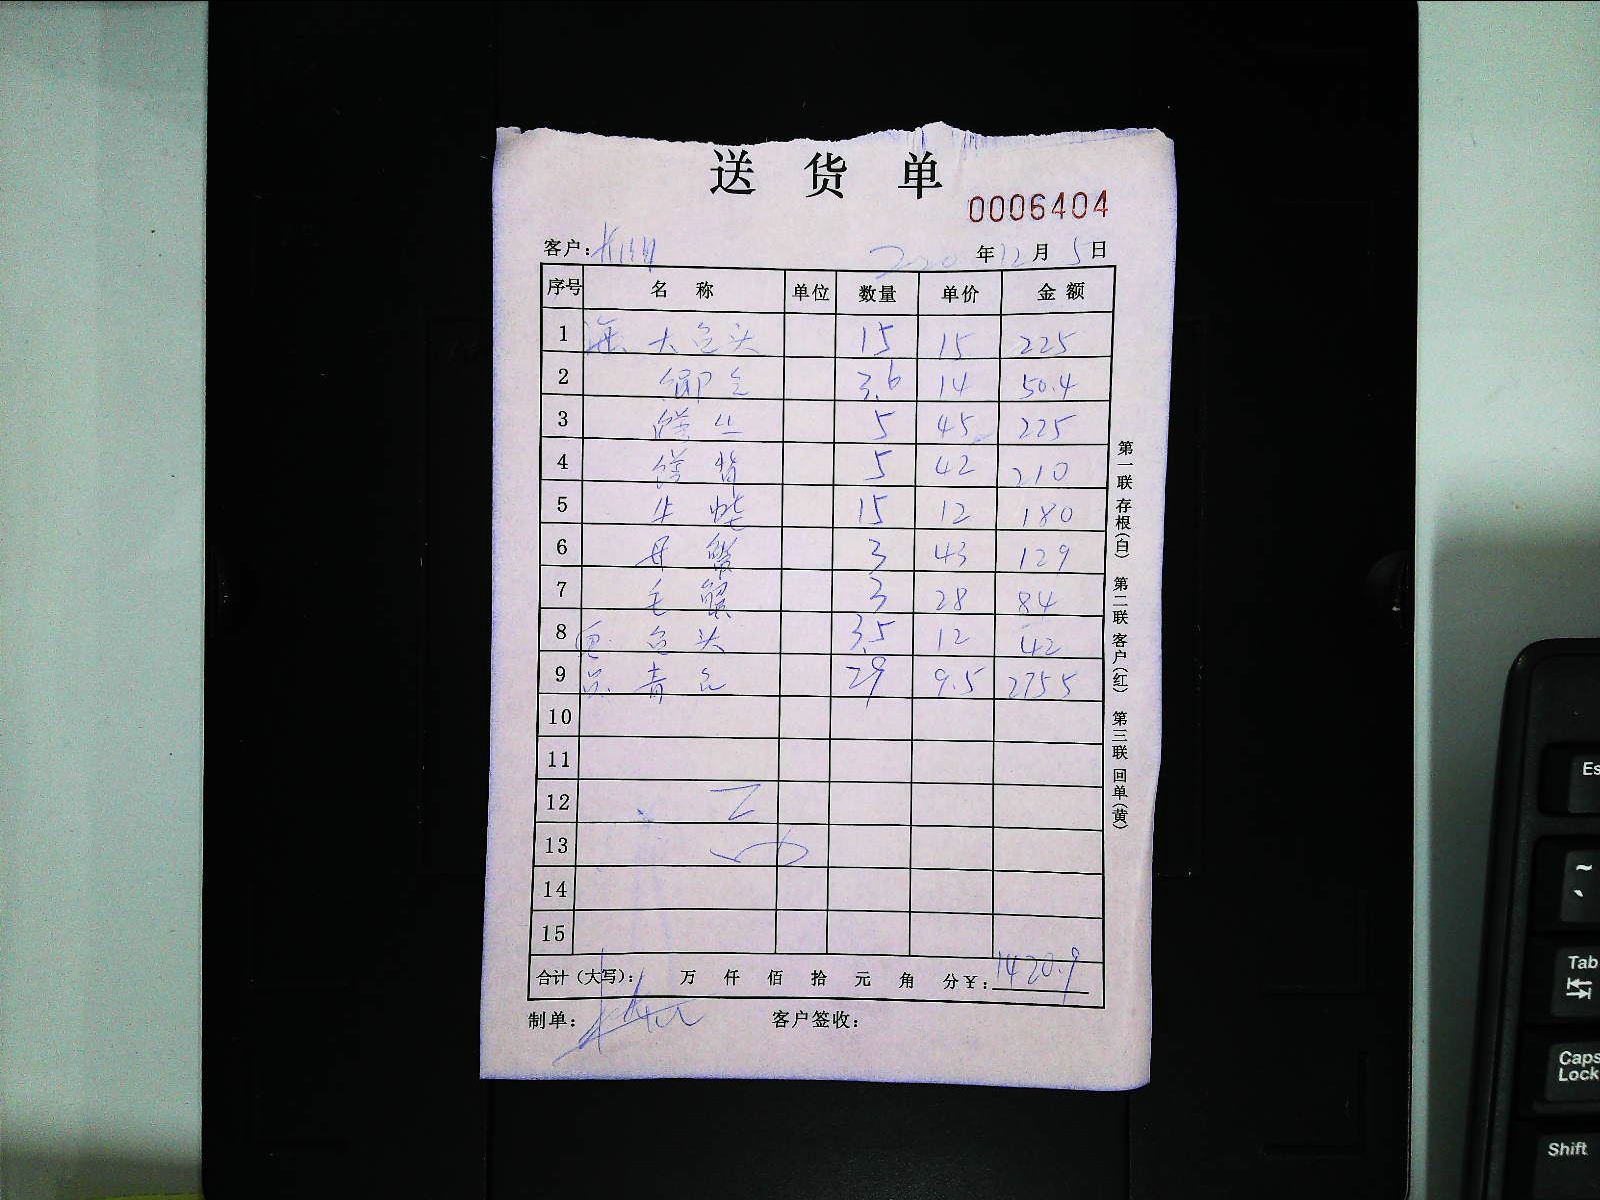 送货单
0006404
客户: 年12月5日
序号 名称 单位 数量 单价 金额
1 大包头 15 15 225
2 3.6 14 50.4
3 5 45 225
4 5 42 210
5 15 12 180
6 蟹 3 43 129
7 毛蟹 3 28 84
8 包头 3.5 12 42
9 青 29 9.5 275.5
10
11
12
13
14
15
合计(大写): 万 仟 佰 拾 元 角 分¥: 1420.9
制单: 客户签收:
第一联 存根(白) 第二联 客户(红) 第三联 回单(黄)
Es
~
Tab
Caps
Lock
Shift